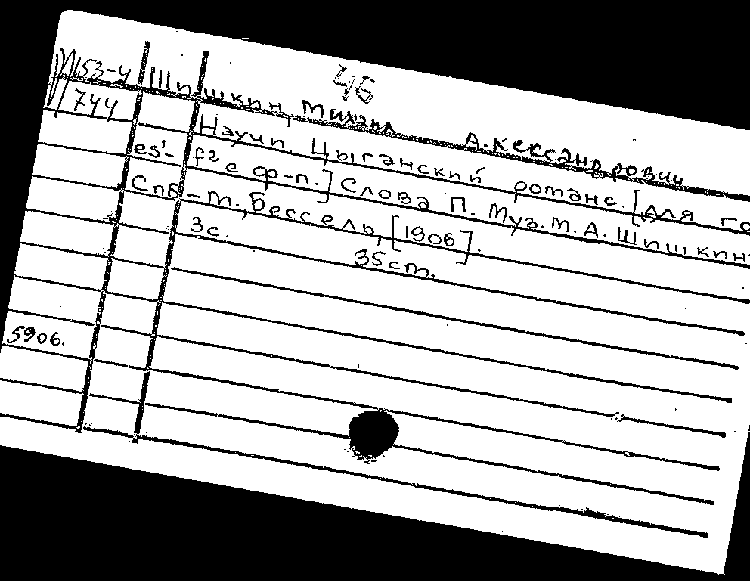 46
М153-4 Шишкин, Михаил Александрович
744
Научи. Цыганский романс. [Для го
es'- fг с ф-п.] Слова П. Муз. М. А. Шишкин
Спб-М., Бессель, [1906].
3с. 35cm.
5906.